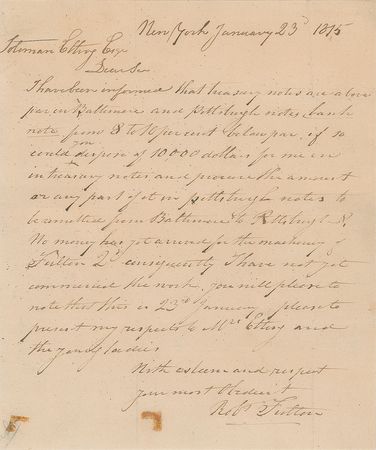 New York January 23d 1815
Soloman Etting Esqr
Dear Sir
I have been informed that treasury notes are above
par in Baltimore and Pittsburgh notes, bank
note from 8 to 10 per cent below par. if so
could you dispose of 10000 dollars for me in
in treasury notes and procure the amount
or any part of it in pittsburgh notes to
be remitted from Baltimore to Pittsburgh &.
No money has yet arrived for the machinery of
Fulton 2d consequently I have not yet
commenced the work. you will please to
note that this is 23rd January please to
present my respects to Mrs Etting and
the young ladies
With esteem and respect
your most Obedient
Robt Fulton